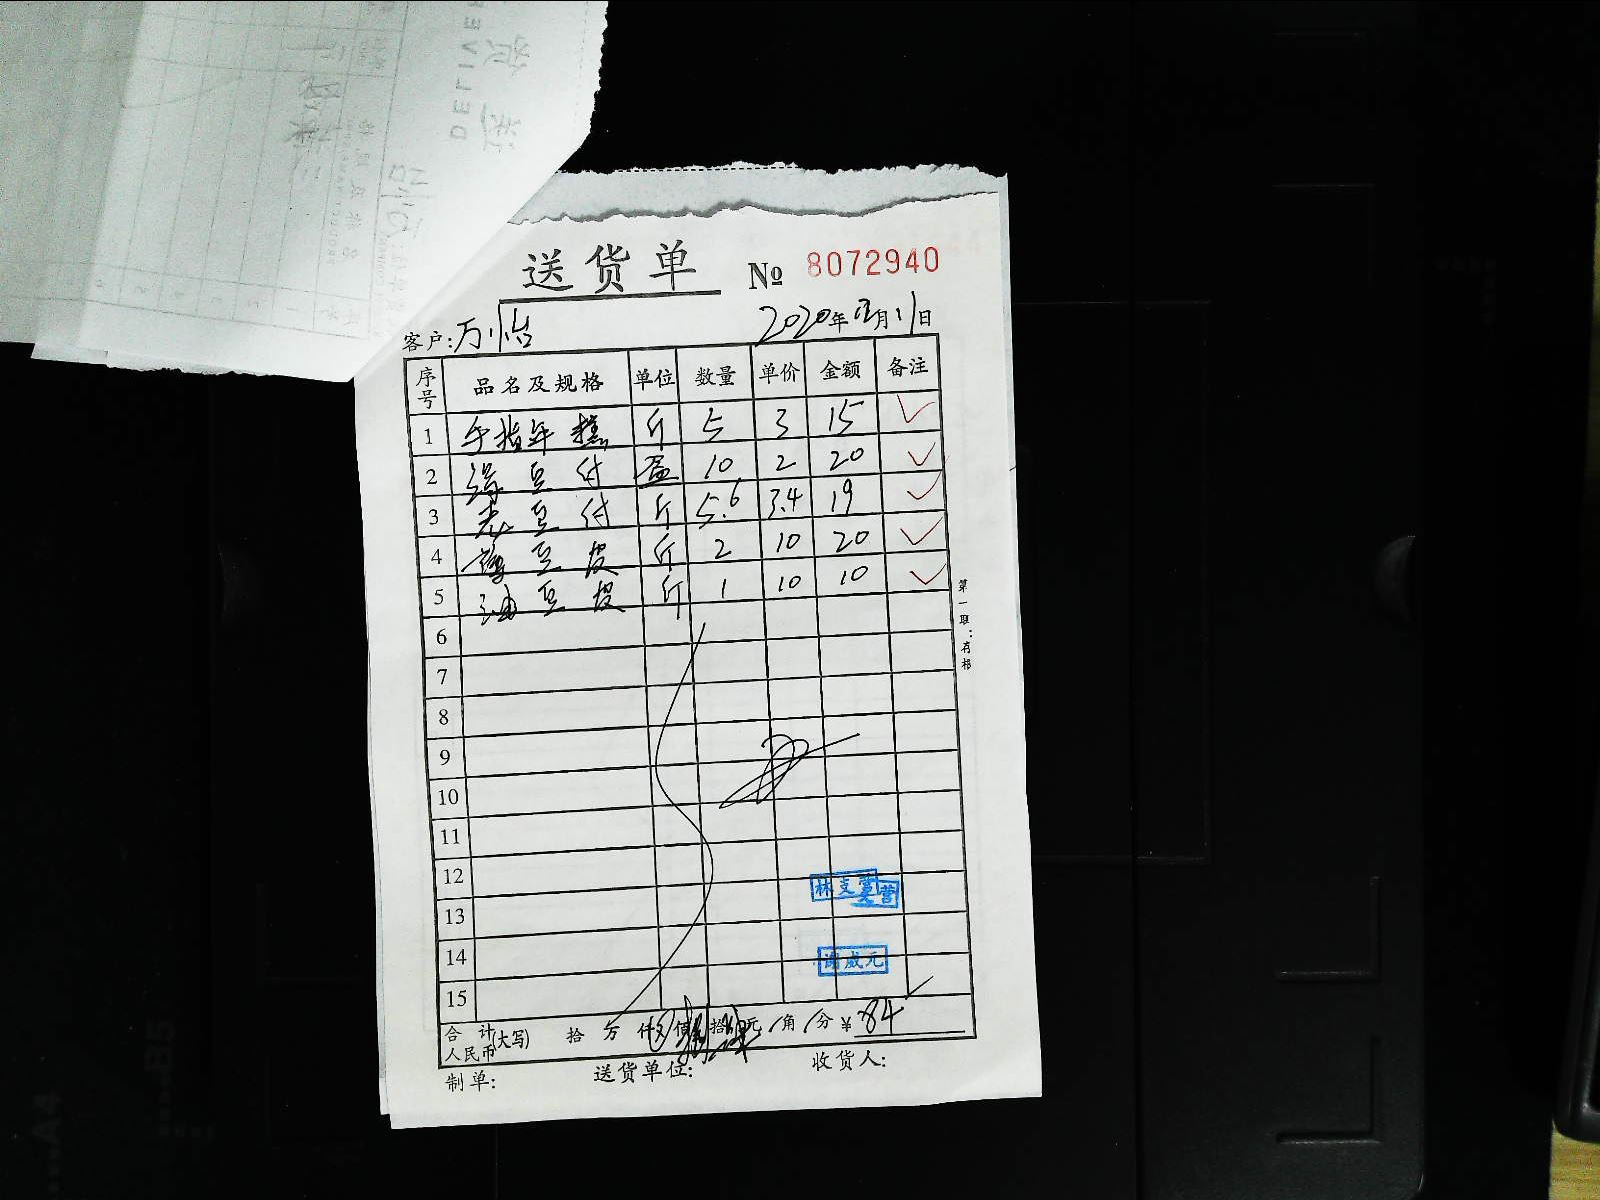 送货单 № 8072940
客户:万怡 2020年12月11日
序号 品名及规格 单位 数量 单价 金额 备注
1 手指年糕 斤 5 3 15 ✓
2 豆付 盒 10 2 20 ✓
3 老豆付 斤 5.6 3.4 19 ✓
4 薄豆皮 斤 2 10 20 ✓
5 油豆皮 斤 1 10 10 ✓
6
7
8
9
10
11
12
13
14
15
林支
威元
合计人民币(大写) 拾 万 仟 佰 拾 元 角 分 ¥ 84
制单: 送货单位: 收货人:
第一联:存根
DELIVE
B5
A4